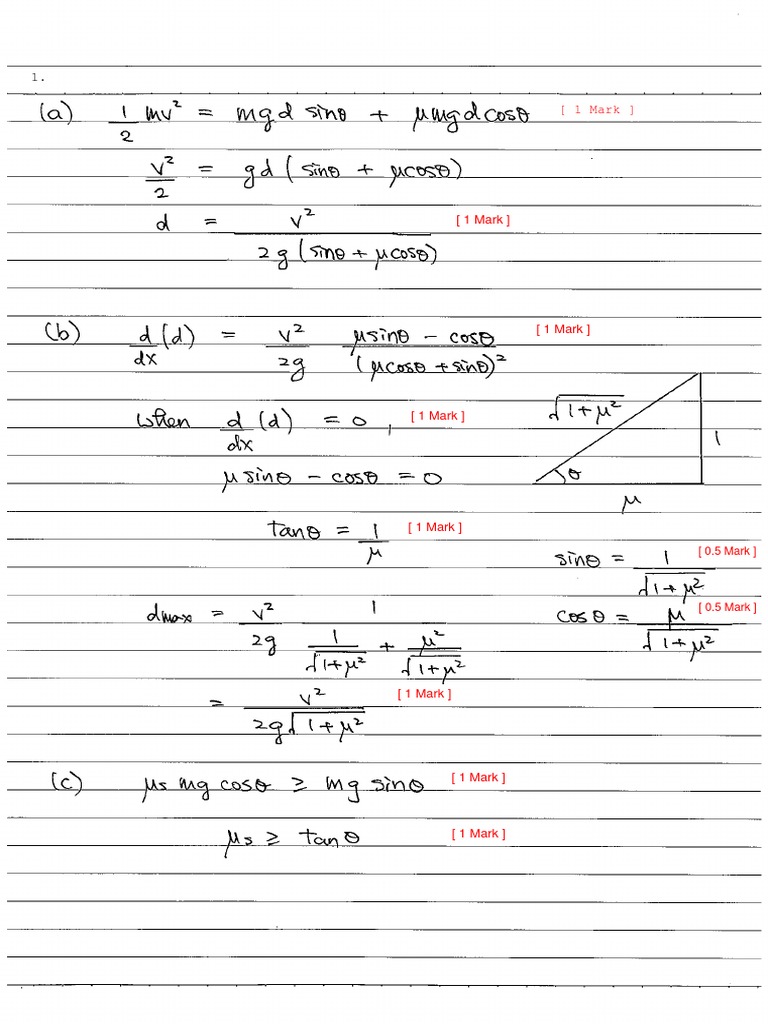 1.
(a) 1/2 mv² = mgd sinθ + μmgdcosθ [ 1 Mark ]
v²/2 = gd ( sinθ + μcosθ)
d = v² / 2g (sinθ + μcosθ) [ 1 Mark ]
(b) d/dx (d) = v²/2g (μsinθ - cosθ)/(μcosθ + sinθ)² [ 1 Mark ]
when d/dx (d) = 0, [ 1 Mark ]
√1+μ²
1
θ
μ
μ sinθ - cosθ = 0
tanθ = 1/μ [ 1 Mark ]
sinθ = 1/√1+μ² [ 0.5 Mark ]
cosθ = μ/√1+μ² [ 0.5 Mark ]
dmax = v²/2g 1/(1/√1+μ² + μ²/√1+μ²)
= v²/2g√1+μ² [ 1 Mark ]
(c) μs mg cosθ ≥ mg sinθ [ 1 Mark ]
μs ≥ tanθ [ 1 Mark ]